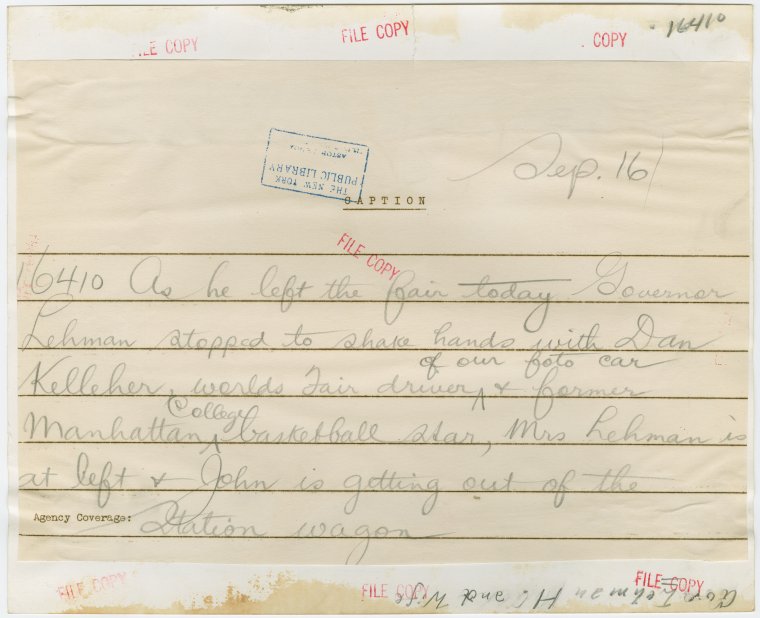 16410
FILE COPY
FILE COPY
COPY
Sep. 16
THE NEW YORK
PUBLIC LIBRARY
ASTOR
CAPTION
FILE COPY
16410 As he left the fair today Governor
Lehman stopped to shake hands with Dan
of our foto car
Kelleher, worlds Fair driver ^ & former
College
Manhattan ^ basketball star, Mrs Lehman is
at left & John is getting out of the
Agency Coverage: Station wagon
FILE COPY
FILE COPY
FILE COPY
Gov Lehman H. and Wife